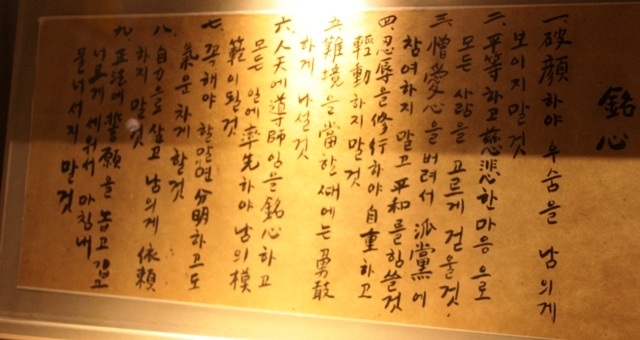 銘心
一. 破顔하야 우숨을 남의게
보이지말것
二. 平等하고慈悲한마음으로
모든사람을고르게건울것
三. 憎愛心을버려서派黨에
참여하지말고平和를힘쓸것
四. 忍辱을修行하야自重하고
輕動하지말것
五. 難境을當한때에는勇敢
하게나설것
六. 人天에導師임을銘心하고
모든일에率先하야남의模
範이될것
七. 꼭해야할말이면分明하고도
氣운차게할것
八. 自力으로살고남의게依賴
하지말것
九. 正法에誓願을높고깊고
너르게세워서마침내
물너서지말것